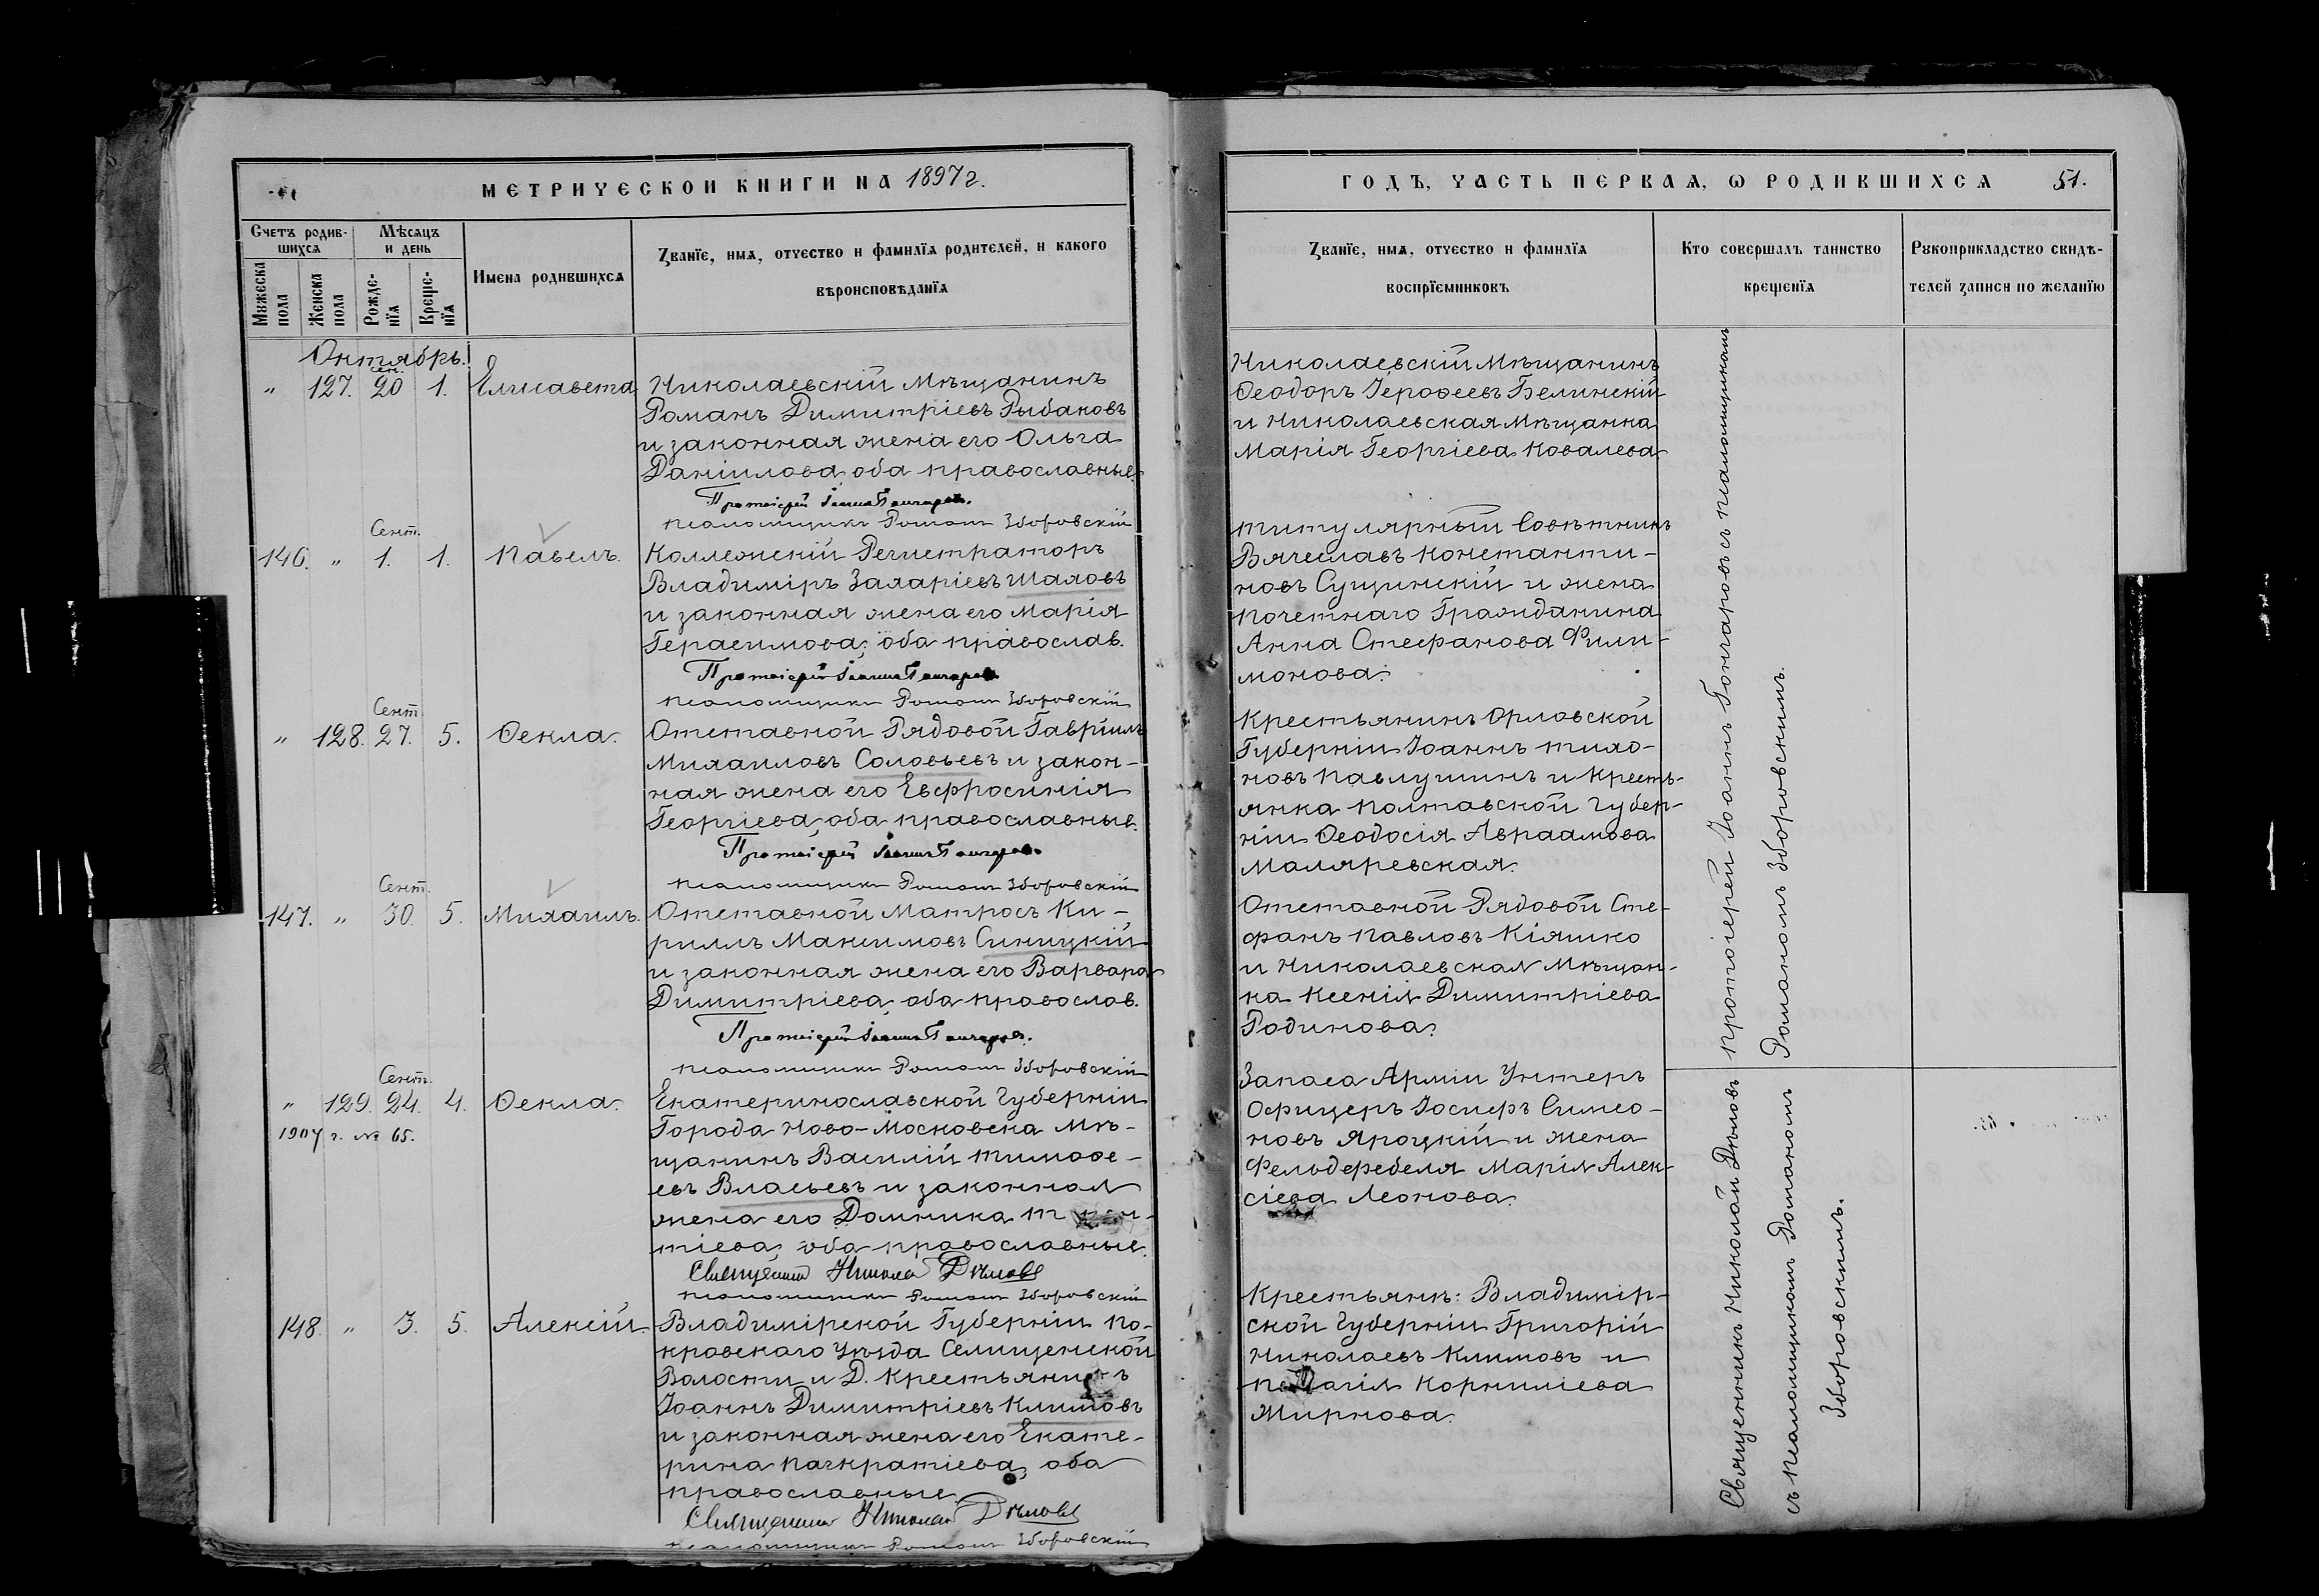 МЕТРИЧЕСКОЙ КНИГИ НА 1897 г.
Счетъ родив-
шихся
Мѣсяцъ
и день
Мужеска
пола
Женска
пола
Рожде-
нїя
Креще-
нїя
Имена родившихся
Званїе, имя, отчество и фамилїя родителей, и какого
вѣроисповѣданїя
Октябрь.
сен.
" 127. 20 1. Елисавета
Николаевскій Мѣщанинъ
Романъ Димитріевъ Рыбаковъ
и законная жена его Ольга
Даніилова, оба православные.
Протоіерей Іоаннъ Гончаровъ.
псаломщикъ Романъ Зборовскій
Сент.
146. " 1. 1. Павелъ.
Коллежскій Регистраторъ
Владиміръ Захаріевъ Шаховъ
и законная жена его Марія
Герасимова, оба православ.
Протоіерей Іоаннъ Гончаровъ
псаломщикъ Романъ Зборовскій
Сент.
" 128. 27. 5. Ѳекла.
Отставной Рядовой Гавріилъ
Михаиловъ Соловьевъ и закон-
ная жена его Евфросинія
Георгіева, оба православные.
Протоіерей Іоаннъ Гончаровъ
псаломщикъ Романъ Зборовскій
Сент.
147. " 30. 5. Михаилъ.
Отставной Матросъ Ки-
риллъ Максимовъ Синицкій
и законная жена его Варвара
Димитріева, оба православ.
Протоіерей Іоаннъ Гончаровъ.
псаломщикъ Романъ Зборовскій
Сент.
" 129. 24. 4. Ѳекла.
1907 г. № 65.
Екатеринославской Губерніи
Города Ново-Московска Мѣ-
щанинъ Василій Тимоѳе-
евъ Власьевъ и законная
жена его Домника
тіева, оба православные.
Священникъ Николай Дѣловъ
псаломщикъ Романъ Зборовскій
148. " 3. 5. Алексій.
Владимірской Губерніи По-
кровскаго Уѣзда Селищенской
Волости и Д. Крестьянинъ
Іоаннъ Димитріевъ Климовъ
и законная жена его Екате-
рина Панкратіева, оба
православные.
Священникъ Николай Дѣловъ
псаломщикъ Романъ Зборовскій
ГОДЪ, ЧАСТЬ ПЕРВАЯ, Ѡ РОДИВШИХСЯ 51.
Званїе, имя, отчество и фамилїя
воспрїемниковъ
Кто совершалъ таинство
крещенїя
Рукоприкладство свидѣ-
телей записи по желанїю
Николаевскій Мѣщанинъ
Ѳеодоръ Іероѳеевъ Белинскій
и Николаевская Мѣщанка
Марія Георгіева Ковалева.
Титулярный Совѣтникъ
Вячеславъ Константи-
новъ Сущинскій и жена
Почетнаго Гражданина
Анна Стефанова Фили-
монова.
Крестьянинъ Орловской
Губерніи Іоаннъ Тихо-
новъ Павлушинъ и Кресть-
янка Полтавской Губер-
ніи Ѳеодосія Авраамова
Маляревская.
Отставной Рядовой Сте-
фанъ Павловъ Кіяшко
и Николаевская Мѣщан-
ка Ксенія Димитріева
Родинова.
Запаса Арміи Унтеръ
Офицеръ Іосифъ Симео-
новъ Яроцкій и жена
Фельдфебеля Марія Алек-
сіева Леонова.
Крестьяне: Владимір-
ской Губерніи Григорій
Николаевъ Климовъ и
Пелагія Корниліева
Жирнова.
Протоіерей Іоаннъ Гончаровъ съ псаломщикомъ
Романомъ Зборовскимъ.
Священникъ Николай Дѣловъ
съ псаломщикомъ Романомъ
Зборовскимъ.